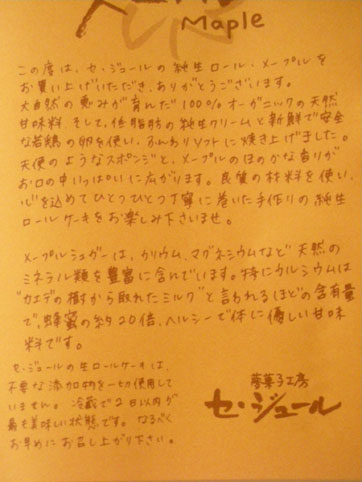 Maple
この度は、セ・ジュールの純生ロール・メープルを
お買い上げいただき、ありがとうございます。
大自然の恵みが育んだ100%オーガニックの天然
甘味料、そして、低脂肪の純生クリームと新鮮で安全
な若鶏の卵を使い、ふんわりソフトに焼き上げました。
天使のようなスポンジと、メープルのほのかな香りが
お口の中いっぱいに広がります。良質の材料を使い、
心を込めてひとつひとつ丁寧に巻いた手作りの純生
ロールケーキをお楽しみ下さいませ。
メープルシュガーは、カリウム、マグネシウムなど天然の
ミネラル類を豊富に含んでいます。特にカルシウムは
"カエデの樹から取れたミルク"と言われるほどの含有量
で、蜂蜜の約20倍、ヘルシーで体に優しい甘味
料です。
セ・ジュールの生ロールケーキは、
不要な添加物を一切使用して
いません。冷蔵で2日以内が
最も美味しい状態です。なるべく
お早めにお召し上がり下さい。
夢菓子工房
セ・ジュール